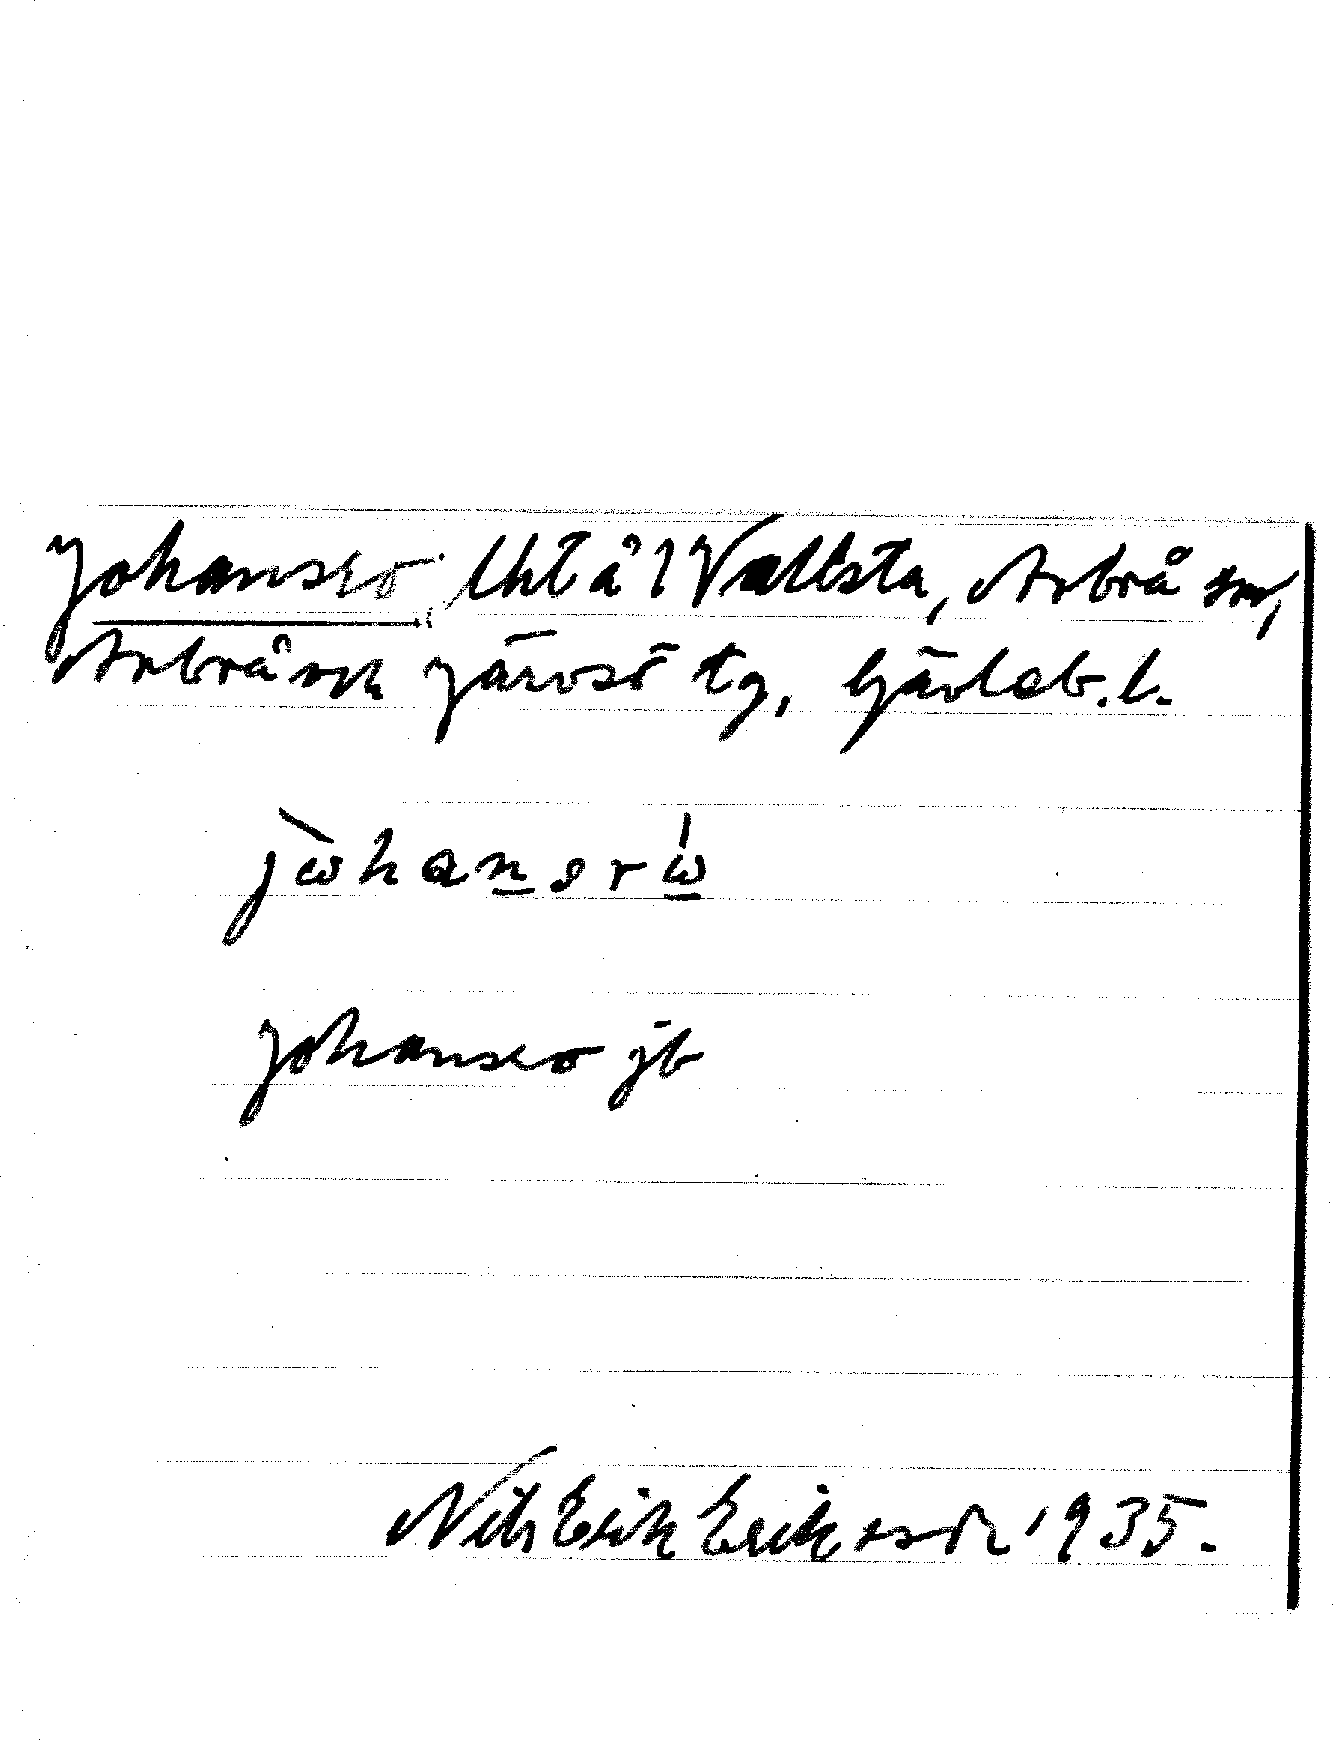 Johansro, lht å 1 Vallsta, Arbrå sn,
Arbrå och Järvsö tg, Gävleb. l.
jὼhan̲srώ̲
Johansro jb
Nils Erik Eriksson 1935.